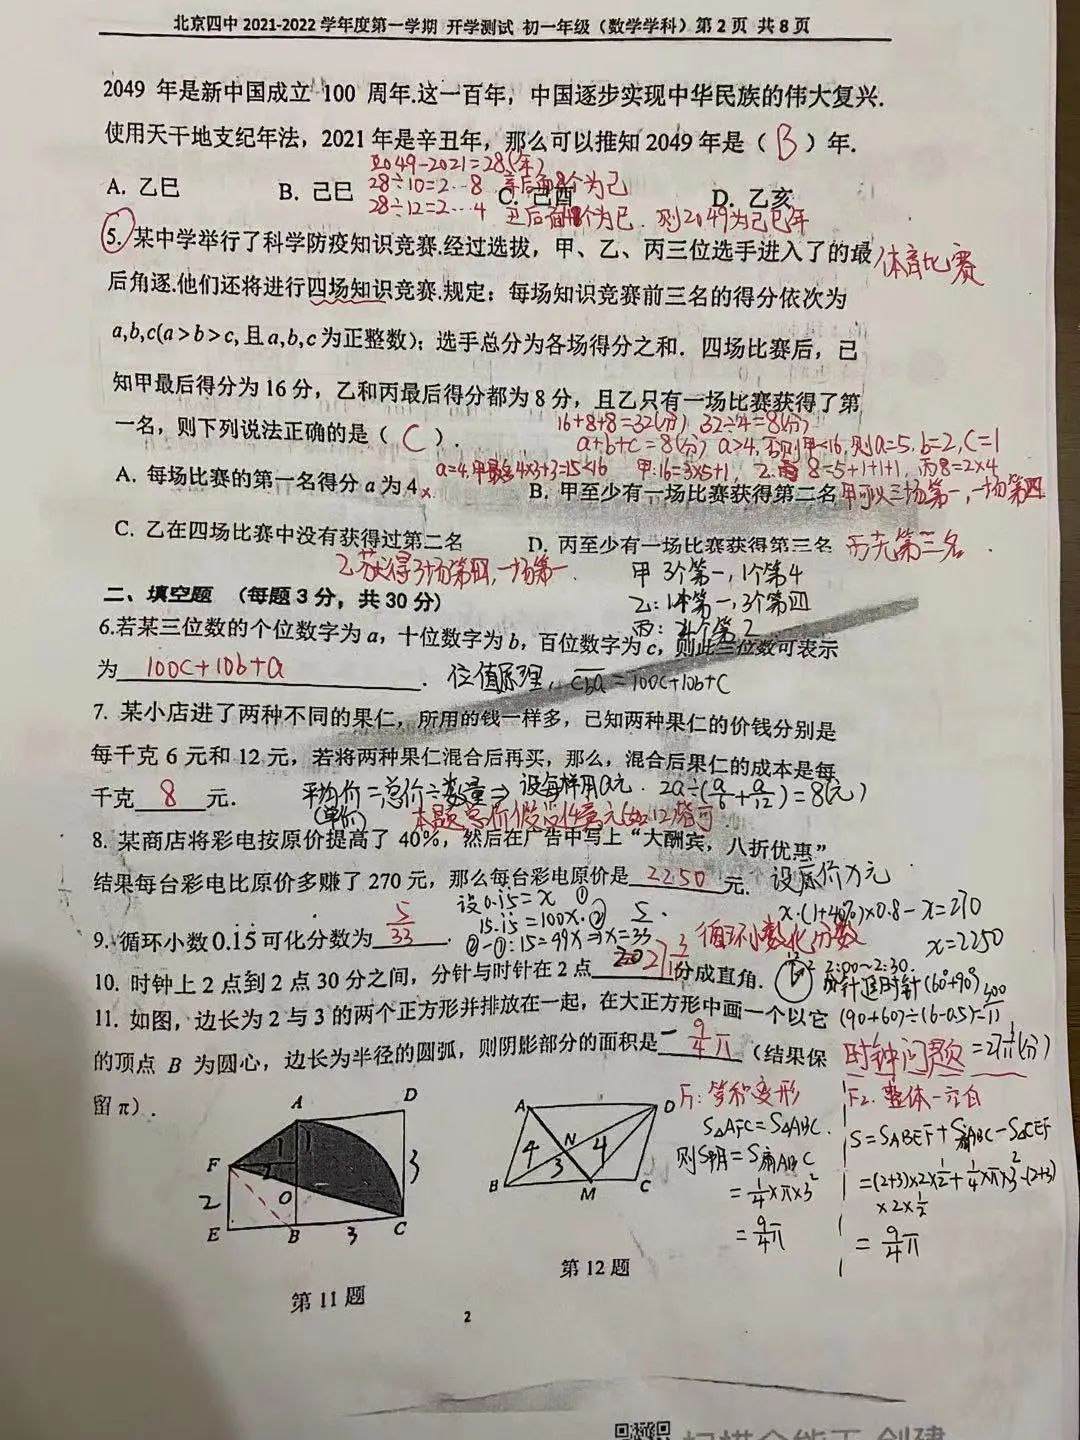 北京四中 2021-2022 学年度第一学期 开学测试 初一年级（数学学科）第 2 页 共 8 页
2049 年是新中国成立 100 周年.这一百年，中国逐步实现中华民族的伟大复兴.
使用天干地支纪年法，2021 年是辛丑年，那么可以推知 2049 年是（ B ）年.
2049-2021=28(年)
A. 乙巳 B. 己巳 C. 己酉 D. 乙亥
28÷10=2…8 辛后面8个为己
28÷12=2…4 丑后面4个为巳. 则2049为己巳年
5. 某中学举行了科学防疫知识竞赛.经过选拔，甲、乙、丙三位选手进入了的最 体育比赛
后角逐.他们还将进行四场知识竞赛.规定：每场知识竞赛前三名的得分依次为
a,b,c(a>b>c, 且 a,b,c 为正整数)；选手总分为各场得分之和．四场比赛后，已
知甲最后得分为 16 分，乙和丙最后得分都为 8 分，且乙只有一场比赛获得了第
16+8+8=32(分) 32÷4=8(分)
一名，则下列说法正确的是（ C ）.
a+b+c=8(分) a>4, 否则甲<16, 则a=5, b=2, c=1
a=4, 甲最多4×3+3=15<16 甲:16=3×5+1, 乙: 8=5+1+1+1, 丙8=2×4
A. 每场比赛的第一名得分 a 为 4 × B. 甲至少有一场比赛获得第二名 甲可以三场第一,一场第四
C. 乙在四场比赛中没有获得过第二名 D. 丙至少有一场比赛获得第三名 丙无第三名.
乙获得3场第四,一场第一. 甲 3个第一, 1个第4
二、填空题 （每题 3 分，共 30 分） 乙: 1个第一, 3个第四
丙: 4个第2
6.若某三位数的个位数字为 a，十位数字为 b，百位数字为 c，则此三位数可表示
为 100c+10b+a . 位值原理, cba=100c+10b+c
7. 某小店进了两种不同的果仁，所用的钱一样多，已知两种果仁的价钱分别是
每千克 6 元和 12 元，若将两种果仁混合后再买，那么，混合后果仁的成本是每
千克 8 元. 平均价=总价÷数量⇒设每样用a元. 2a÷(a/6+a/12)=8(元)
(单价) 本题总价假设任意元(如12)皆可
8. 某商店将彩电按原价提高了 40%，然后在广告中写上“大酬宾，八折优惠”
结果每台彩电比原价多赚了 270 元，那么每台彩电原价是 2250 元. 设原价为x元
设0.15=x ① x·(1+40%)×0.8-x=270
15.15=100x.② x=2250
9. 循环小数 0.1̇5̇ 可化分数为 5/33 . ②-①:15=99x⇒x=5/33 循环小数化分数
10. 时钟上 2 点到 2 点 30 分之间，分针与时针在 2 点 27 3/11 分成直角. 2:00~2:30.
分针追时针(60°+90°)
11. 如图，边长为 2 与 3 的两个正方形并排放在一起，在大正方形中画一个以它 (90+60)÷(6-0.5)=300/11
的顶点 B 为圆心，边长为半径的圆弧，则阴影部分的面积是 9/4π （结果保 时钟问题 =27 3/11(分)
留 π）.
F1: 等积变形
S△AFC=S△ABC.
则S阴=S扇ABC
=1/4×π×3²
=9/4π
F2. 整体-空白
S=SABEF+S扇ABC-S△CEF
=(2+3)×2×1/2+1/4×π×3²-(2+3)
×2×1/2
=9/4π
A D
1 1
F
2
2 O 3
E B 3 C
A D
4 N 4
3
B M C
第 11 题
第 12 题
2